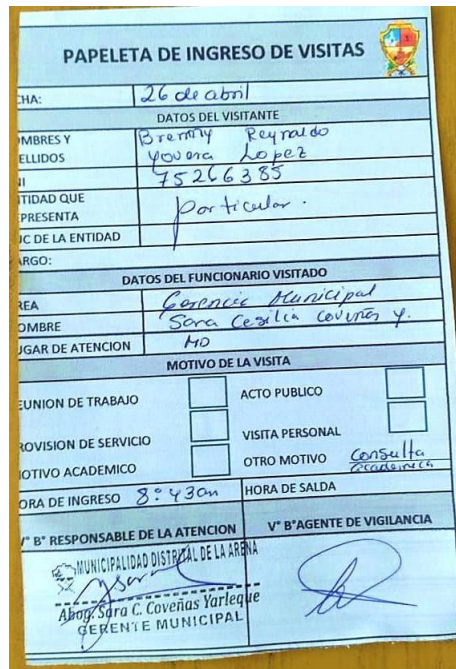 PAPELETA DE INGRESO DE VISITAS
CHA: 26 de abril
DATOS DEL VISITANTE
OMBRES Y Bremmy Reynaldo
ELLIDOS Yovera Lopez
NI 75266385
TIDAD QUE
EPRESENTA particular.
UC DE LA ENTIDAD
ARGO:
DATOS DEL FUNCIONARIO VISITADO
REA Gerencia Municipal
OMBRE Sara Cesilia Coveñas Y.
UGAR DE ATENCION MD
MOTIVO DE LA VISITA
EUNION DE TRABAJO ACTO PUBLICO
ROVISION DE SERVICIO VISITA PERSONAL
OTIVO ACADEMICO OTRO MOTIVO Consulta
academica
ORA DE INGRESO 8:43am HORA DE SALDA
V° B° RESPONSABLE DE LA ATENCION V° B°AGENTE DE VIGILANCIA
MUNICIPALIDAD DISTRITAL DE LA ARENA
Abog. Sara C. Coveñas Yarleque
GERENTE MUNICIPAL